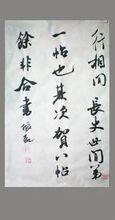 行相間長史世間第
一帖也其次賀八帖
餘非合書